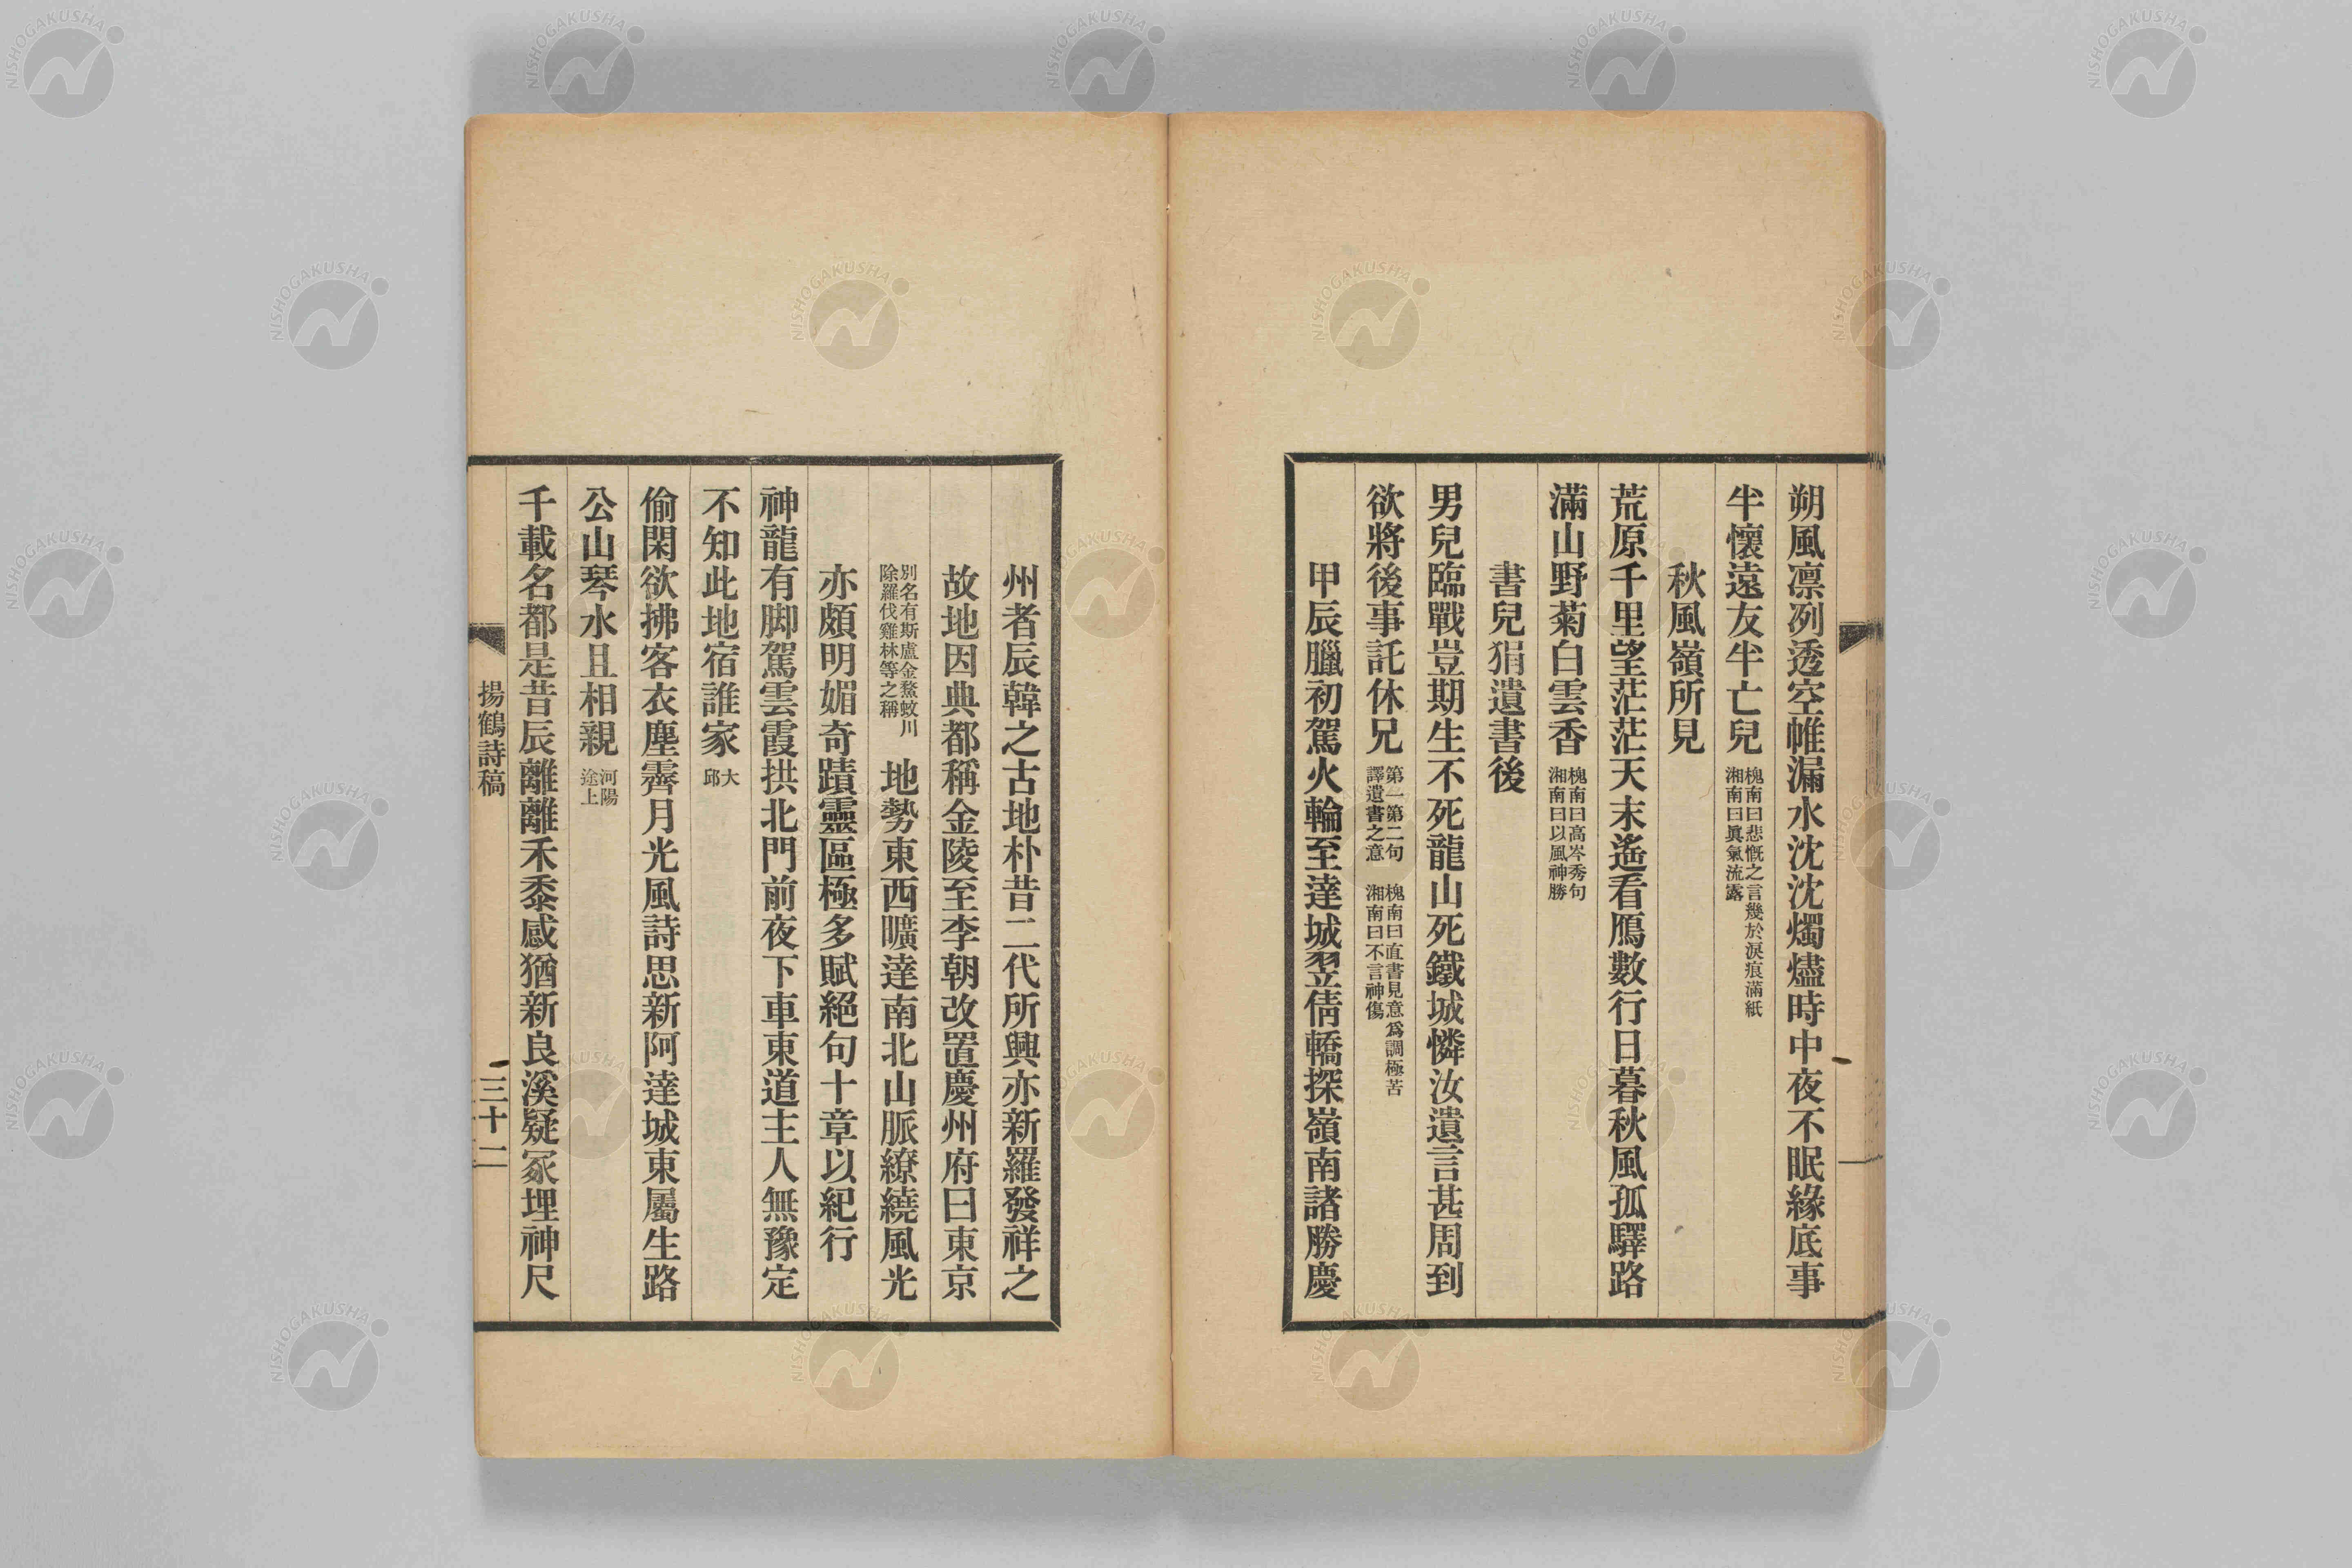 朔風凛冽透空帷漏水沈沈燭燼時中夜不眠緣底事
半懷遠友半亡兒
槐南曰悲慨之言幾於淚痕滿紙
湘南曰眞氣流露
秋風嶺所見
荒原千里望茫茫天末遙看鴈數行日暮秋風孤驛路
滿山野菊白雲香
槐南曰高岑秀句
湘南曰以風神勝
書兒狷遺書後
男兒臨戰豈期生不死龍山死鐵城憐汝遺言甚周到
欲將後事託休兄
第一第二句
譯遺書之意
槐南曰直書見意爲調極苦
湘南曰不言神傷
甲辰臘初駕火輪至達城翌倩轎探嶺南諸勝慶
州者辰韓之古地朴昔二代所興亦新羅發祥之
故地因典都稱金陵至李朝改置慶州府曰東京
別名有斯盧金鰲蚊川
除羅伐雞林等之稱
地勢東西曠達南北山脈繚繞風光
亦頗明媚奇蹟靈區極多賦絕句十章以紀行
神龍有脚駕雲霞拱北門前夜下車東道主人無豫定
不知此地宿誰家
大
邱
偷閑欲拂客衣塵霽月光風詩思新阿達城東屬生路
公山琴水且相親
河陽
途上
千載名都是昔辰離離禾黍感猶新良溪疑冢埋神尺
揚鶴詩稿
三十二
NISHOGAKUSHA